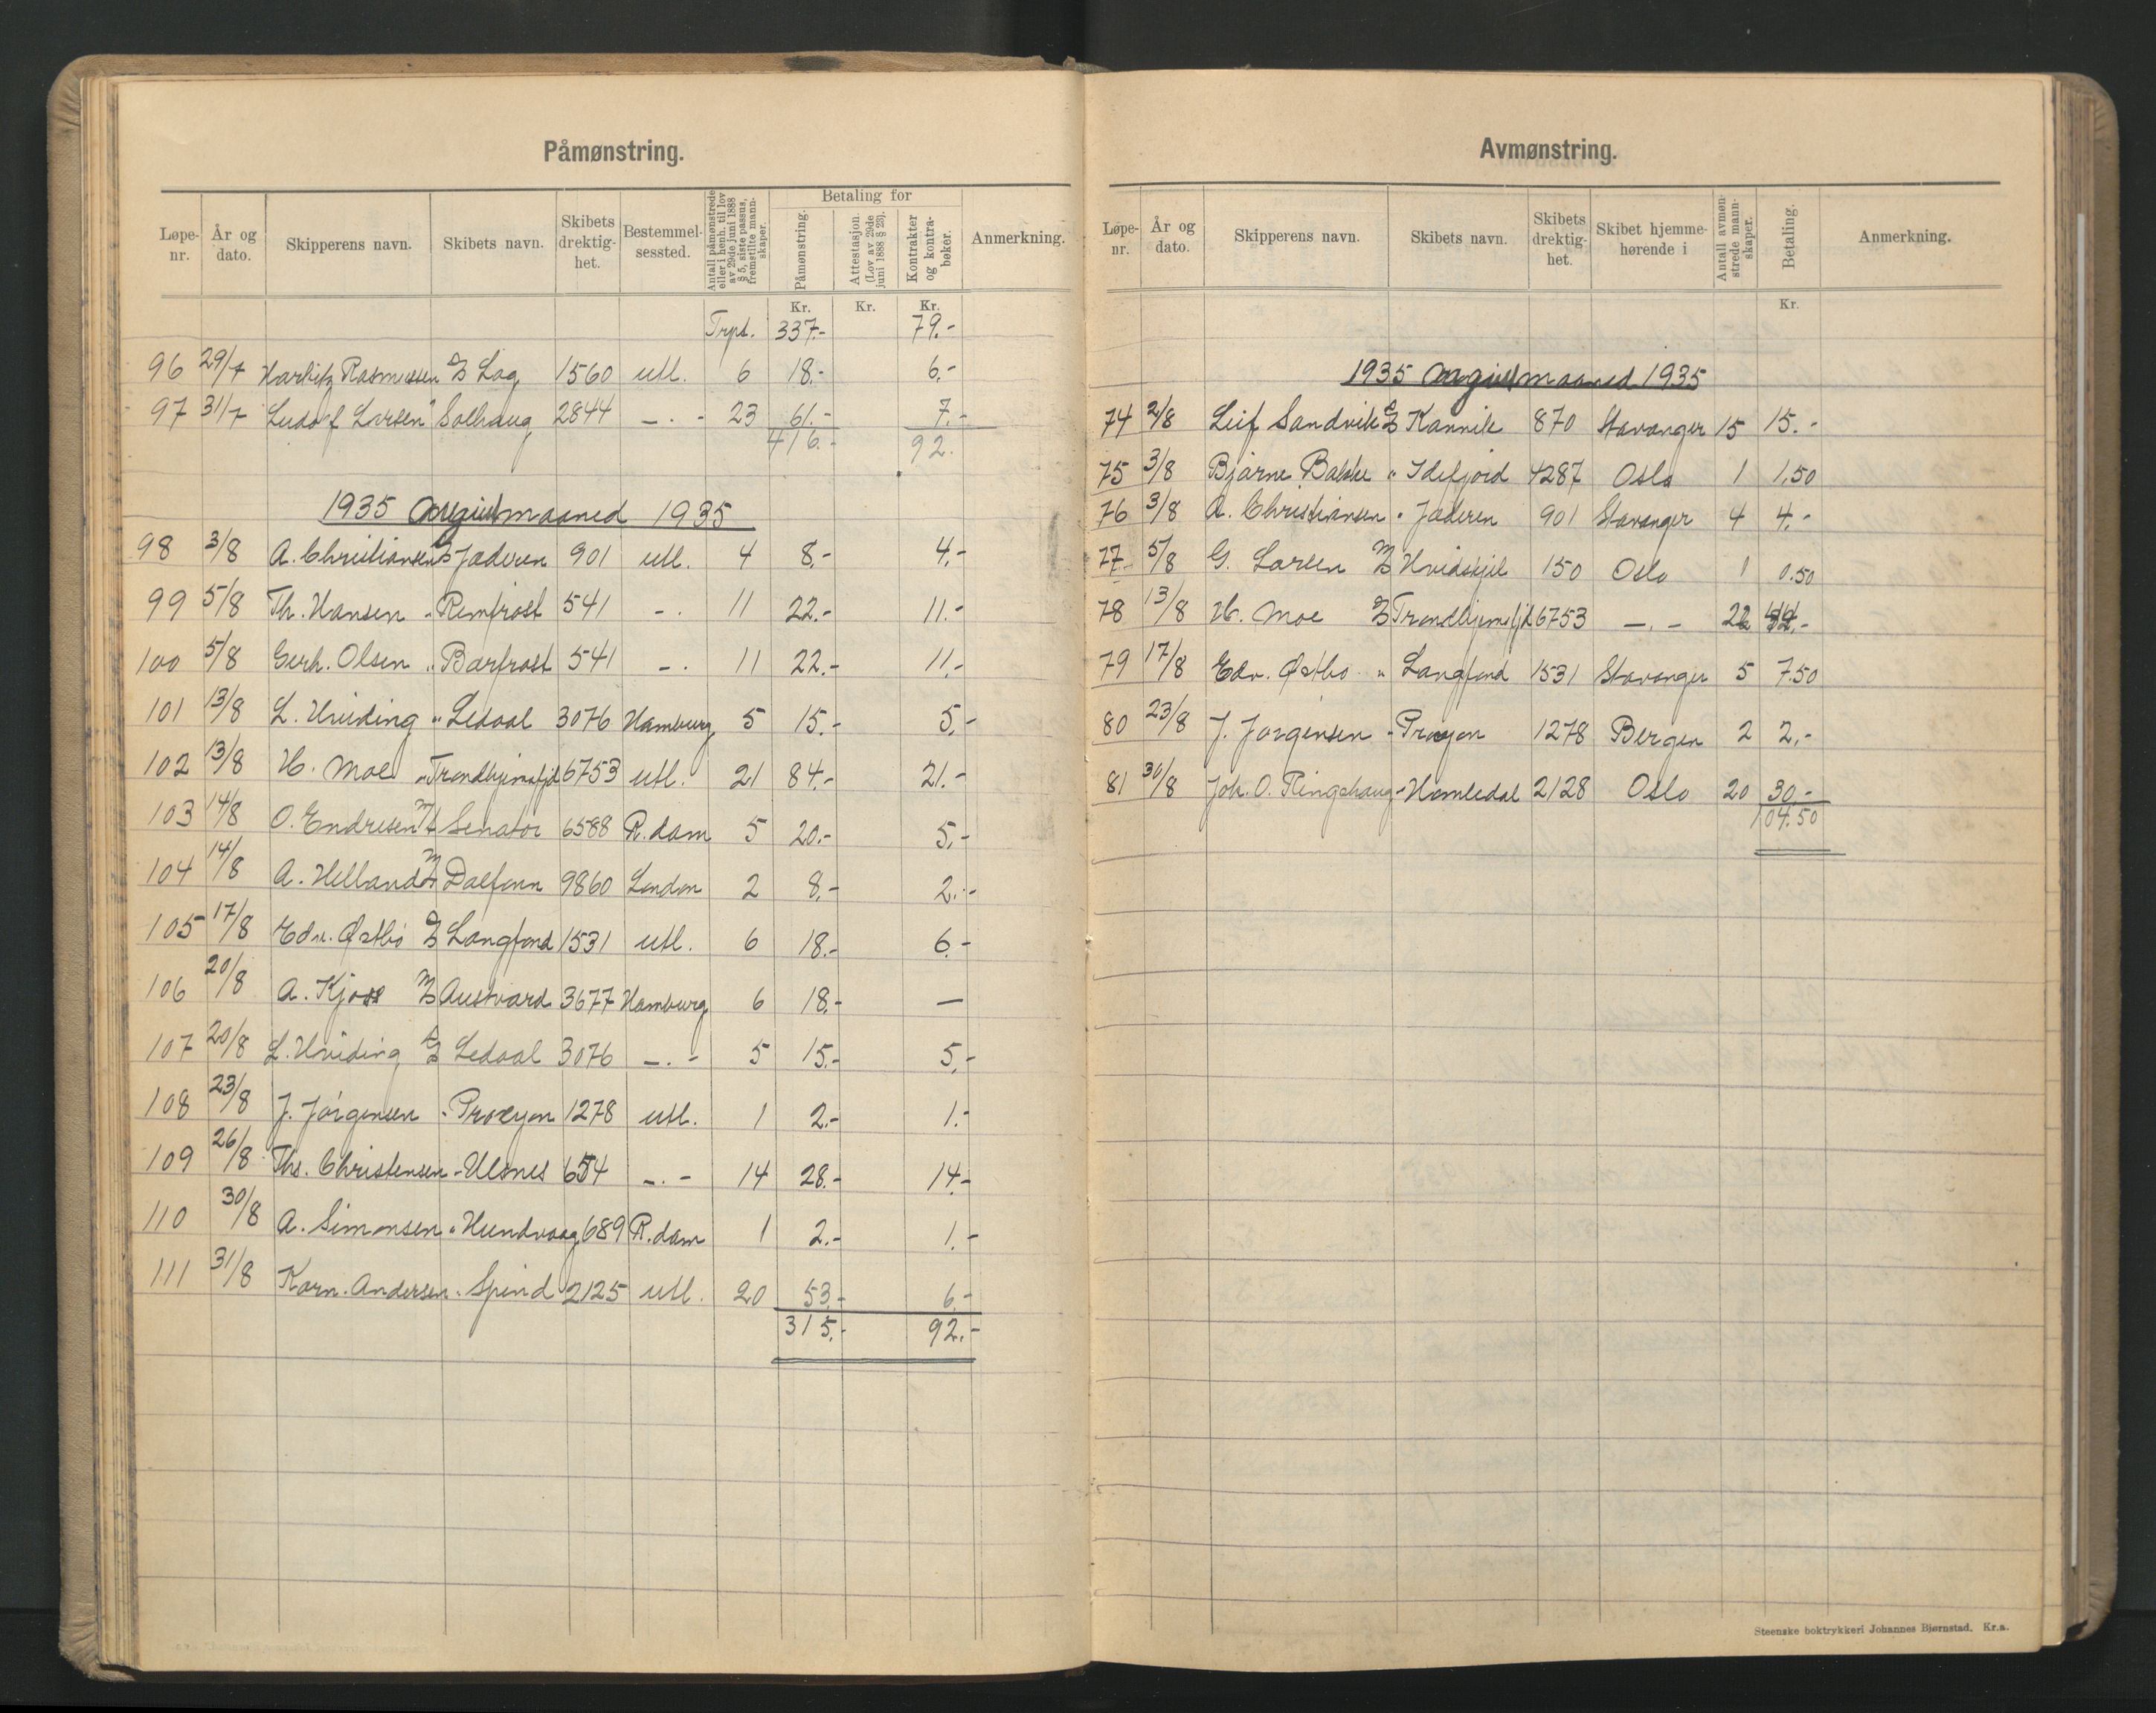 Påmønstring.
Løpe-nr. År og dato. Skipperens navn. Skibets navn. Skibets drektig-het. Bestemmel-sessted. Antall påmønstrede eller i henh. til lov av 29de juni 1888 § 5, siste passus, fremstilte mann-skaper. Betaling for Påmønstring. Attestasjon. (Lov av 29de juni 1888 § 23). Kontrakter og kontra-bøker. Anmerkning.
Kr. Kr. Kr.
Trpt. 337.- 79.-
96 29/7 Rasmussen D/S Log 1560 utl. 6 18.- 6.-
97 31/7 Ludolf Larsen " Solhaug 2844 - . - 23 61.- 7.-
416.- 92.
1935 August maaned 1935
98 3/8 A. Christiansen D/S Jæderen 901 utl. 4 8.- 4.-
99 5/8 Th. Hansen " Rimfrost 541 - . 11 22.- 11.-
100 5/8 Gerh. Olsen " Barfrost 541 - . 11 22.- 11.-
101 13/8 L. Hviding " Ledaal 3076 Hamburg 5 15.- 5.-
102 13/8 H. Moe " Trondhjemsfjd 6753 utl. 21 84.- 21.-
103 14/8 O. Endresen M/T Senator 6588 R.dam 5 20.- 5.-
104 14/8 A. Helland M/T Dalfonn 9860 London 2 8.- 2.-
105 17/8 Edv. Østbö D/S Langfond 1531 utl. 6 18.- 6.-
106 20/8 A. M/S Austvard 3677 Hamburg 6 18.- —
107 20/8 L. Hviding D/S Ledaal 3076 - . - 5 15.- 5.-
108 23/8 J. Jörgensen " Procyon 1278 utl. 1 2.- 1.-
109 26/8 Ths. Christensen " Ulsnes 654 - . - 14 28.- 14.-
110 30/8 A. Simonsen " Hundvaag 689 R.dam 1 2.- 1.-
111 31/8 Korn. Andersen " Spind 2125 utl. 20 53.- 6.-
315.- 92.-
Avmønstring.
Løpe-nr. År og dato. Skipperens navn. Skibets navn. Skibets drektig-het. Skibet hjemme-hørende i Antall avmøn-strede mann-skaper. Betaling. Anmerkning.
Kr.
1935 August maaned 1935
74 2/8 Leif Sandvik D/S Kannik 870 Stavanger 15 15.-
75 3/8 Bjarne Bakke " Idefjord 4287 Oslo 1 1.50
76 3/8 A. Christiansen " Jæderen 901 Stavanger 4 4.-
77 5/8 G. Larsen M/S Hvidskjel 150 Oslo 1 0.50
78 13/8 H. Moe D/S Trondhjemsfjd 6753 - . - 22 44.-
79 17/8 Edv. Østbö " Langfond 1531 Stavanger 5 7.50
80 23/8 J. Jörgensen " Procyon 1278 Bergen 2 2.-
81 30/8 Joh. O. Ringshaug " Homledal 2128 Oslo 20 30.-
104.50
Steenske boktrykkeri Johannes Bjørnstad. Kr.a.